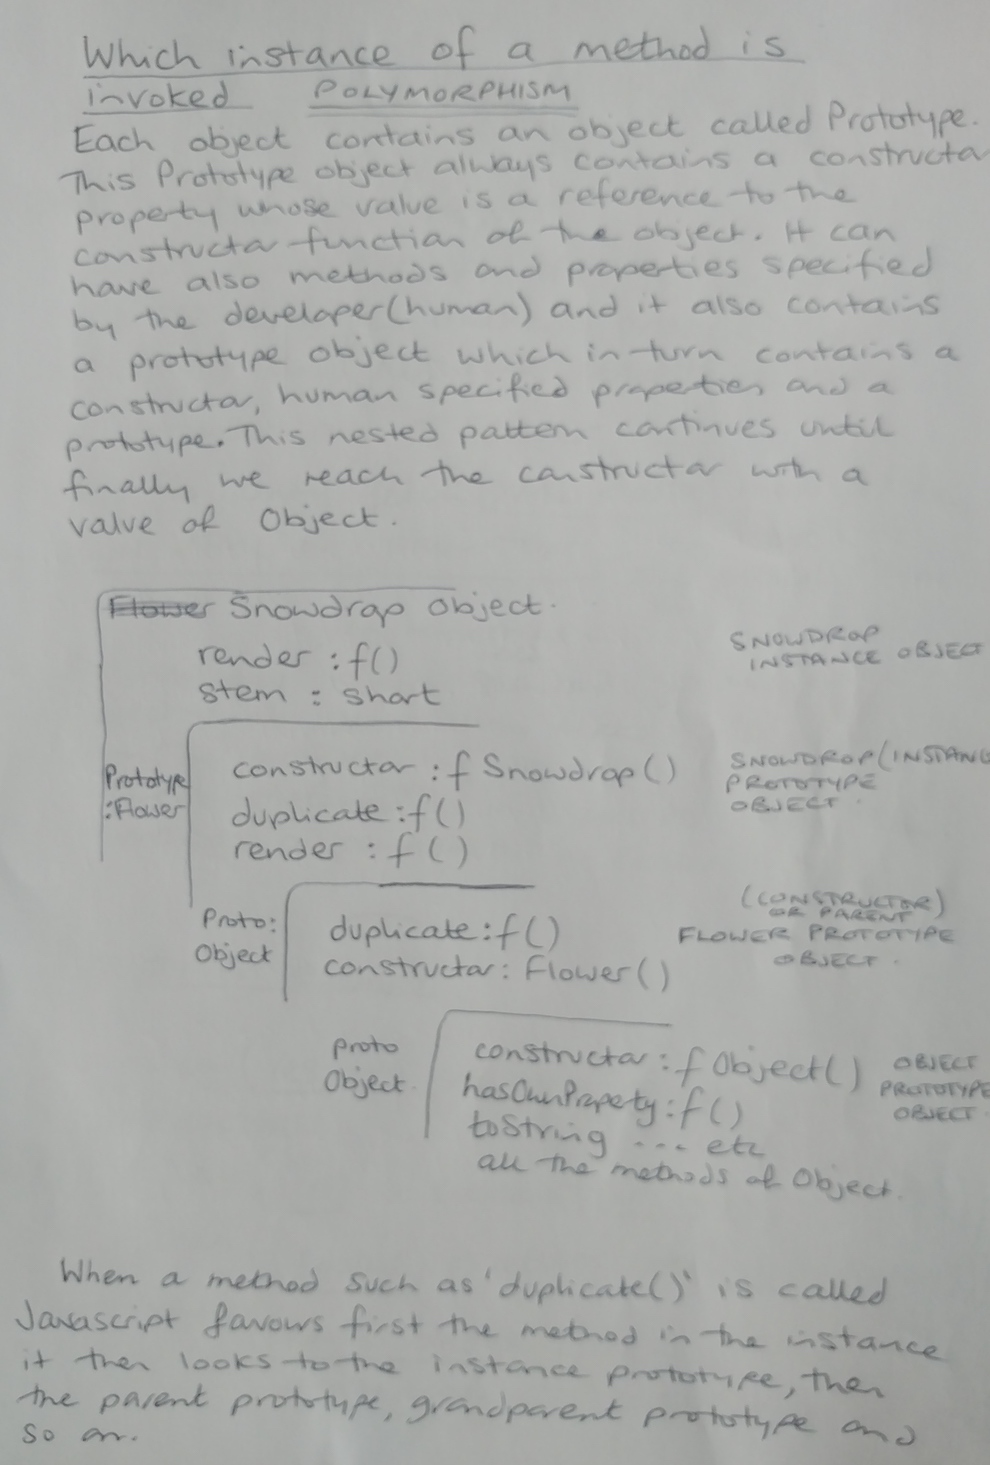 Which instance of a method is
invoked POLYMORPHISM
Each object contains an object called Prototype.
This Prototype object always contains a constructor
property whose value is a reference to the
constructor function of the object. It can
have also methods and properties specified
by the developer(human) and it also contains
a prototype object which in turn contains a
constructor, human specified properties and a
prototype. This nested pattern continues until
finally we reach the constructor with a
value of Object.
Flower Snowdrop object.
render : f()
stem : short
SNOWDROP
INSTANCE OBJECT
Prototype
:Flower
constructor : f Snowdrop()
duplicate : f()
render : f()
SNOWDROP (INSTANC
PROTOTYPE
OBJECT.
Proto:
Object
duplicate : f()
constructor : Flower()
(CONSTRUCTOR)
OR PARENT
FLOWER PROTOTYPE
OBJECT.
proto
Object
constructor : f Object()
hasOwnProperty : f()
toString ... etc
all the methods of Object.
OBJECT
PROTOTYPE
OBJECT.
When a method such as 'duplicate()' is called
Javascript favours first the method in the instance
it then looks to the instance prototype, then
the parent prototype, grandparent prototype and
so on.